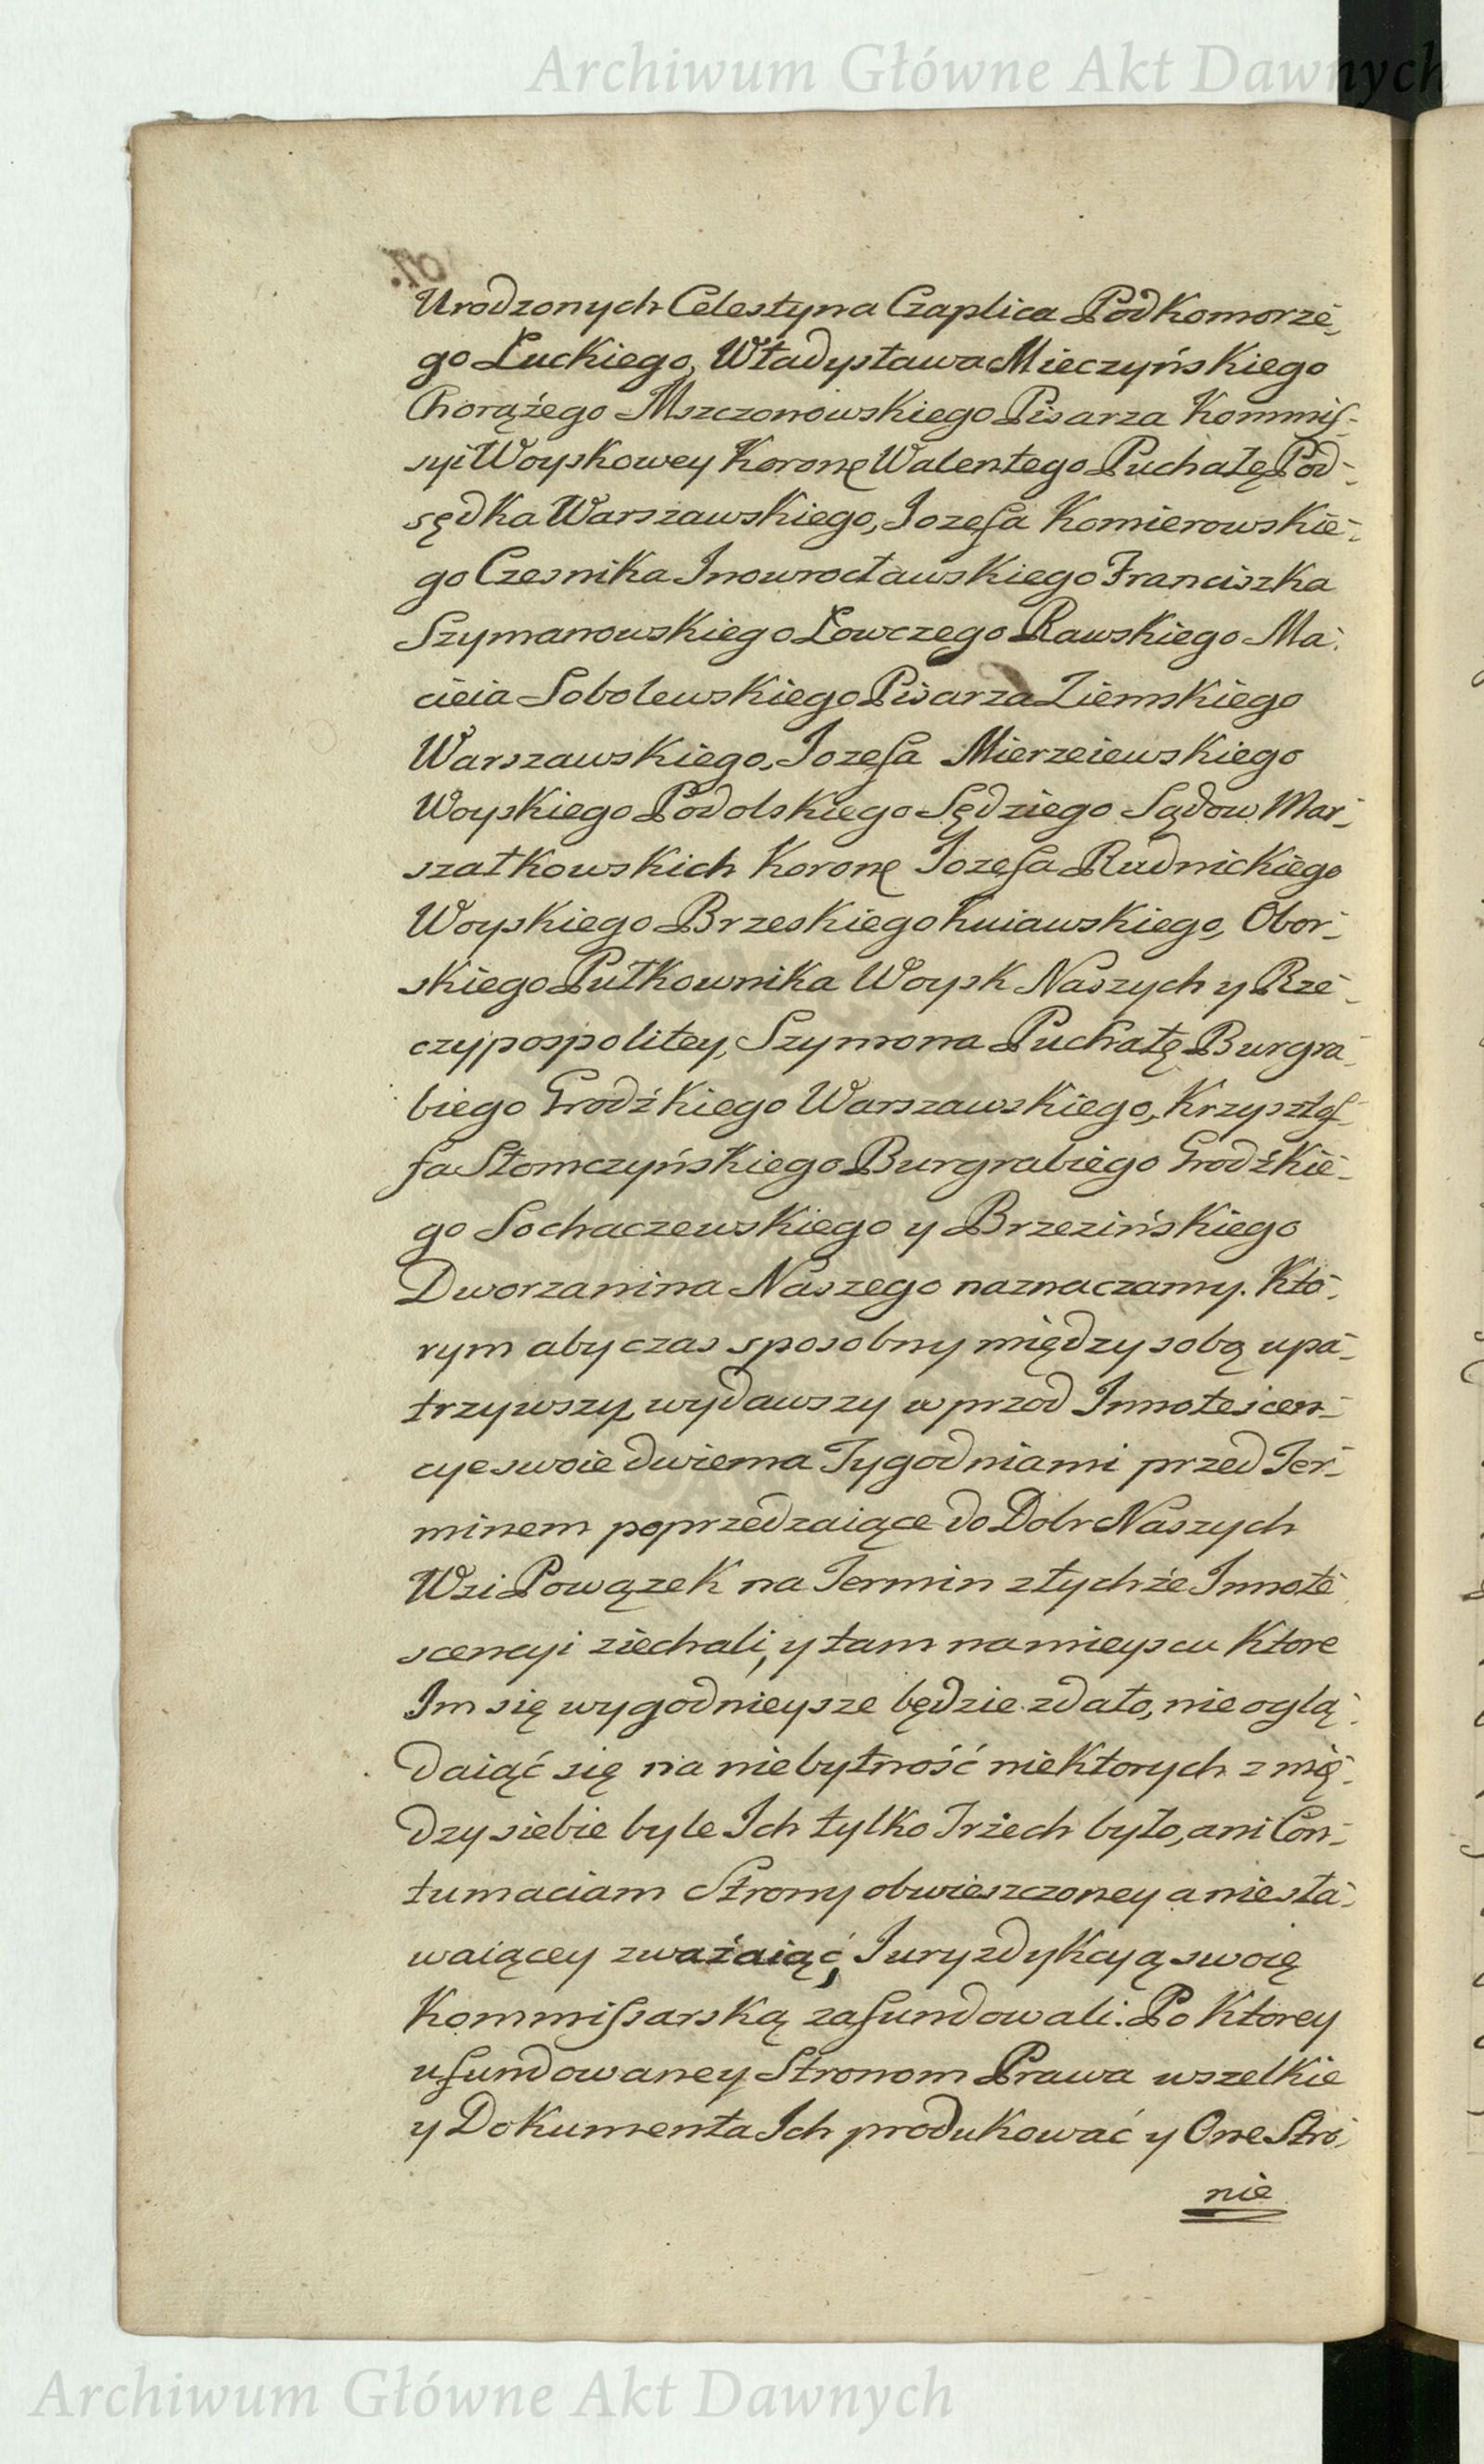 Archiwum Główne Akt Dawnych
Urodzonych Celestyna Czaplica Podkomorze-
go Łuckiego, Władysława Mieczyńskiego
Chorążego Mszczonowskiego Pisarza Kommis-
syi Woyskowey Koronę Walentego Puchałę Pod-
sędka Warszawskiego, Jozefa Komierowskie-
go Czesnika Jnowrocławskiego Franciszka
Szymanowskiego Łowczego Rawskiego Ma-
cieia Sobolewskiego Pisarza Ziemskiego
Warszawskiego, Jozefa Mierzeiewskiego
Woyskiego Podolskiego Sędziego Sądow Mar-
szałkowskich Koronę Jozefa Rudnickiego
Woyskiego Brzeskiego Kuiawskiego, Obor-
skiego Pułkownika Woysk Naszych y Rze-
czypospolitey, Szymona Puchałę Burgra-
biego Grodźkiego Warszawskiego, Krzysztof-
fa Słomczyńskiego Burgrabiego Grodźkie-
go Sochaczewskiego y Brzezińskiego
Dworzanina Naszego naznaczamy. Kto-
rym aby czas sposobny między sobą upa-
trzywszy, wydawszy wprzod Jnnotescen-
cye swoie dwiema Tygodniami przed Ter-
minem poprzedzaiące do Dobr Naszych
Wsi Powązek na Termin z tychże Jnnote-
scencyi ziechali, y tam na mieyscu ktore
Jm się wygodnieysze będzie zdało, nie oglą-
daiąć się na niebytność niektorych z mię-
dzy siebie byle Jch tylko Trzech było, ani Con-
tumaciam Strony obwieszczoney a niesta-
waiącey zważaiąć, Juryzdykcyą swoię
Kommissarską zafundowali. Po ktorey
ufundowaney Stronom Prawa wszelkie
y Dokumenta Jch produkować y One Stro-
nie
Archiwum Główne Akt Dawnych